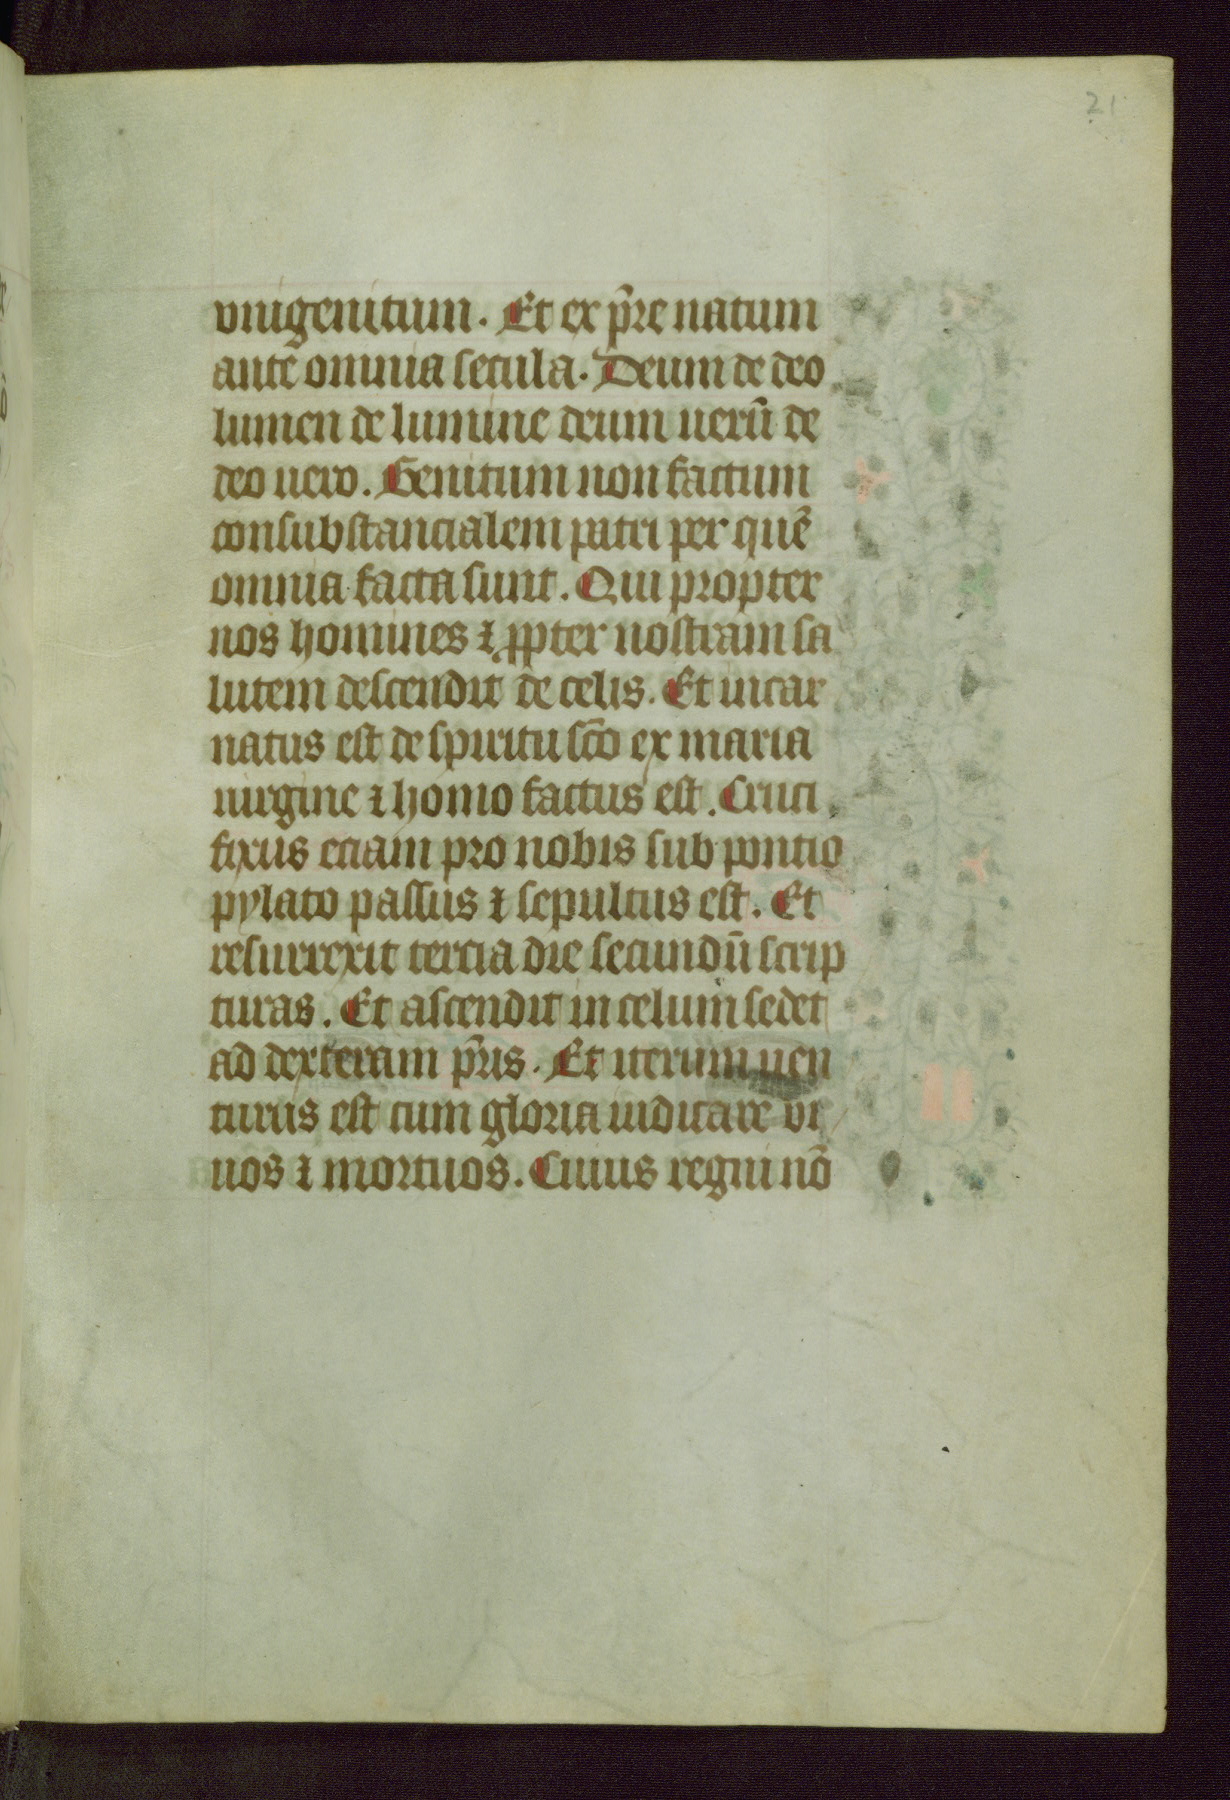 21
vnigenitum. Et ex p̄re natum
ante omnia secula. Deum de deo
lumen de lumine deum uerū de
deo uero. Genitum non factum
consubstancialem patri per quē
omnia facta sunt. Qui propter
nos homines ⁊ ꝓpter nostram sa
lutem descendit de celis. Et incar
natus est de spiritu sc̄o ex maria
uirgine ⁊ homo factus est. Cruci
fixus eciam pro nobis sub pontio
pylato passus ⁊ sepultus est. Et
resurrexit tercia die secundū scrip
turas. Et ascendit in celum sedet
ad dexteram p̄ris. Et iterum uen
turus est cum gloria iudicare vi
uos ⁊ mortuos. Cuius regni nō